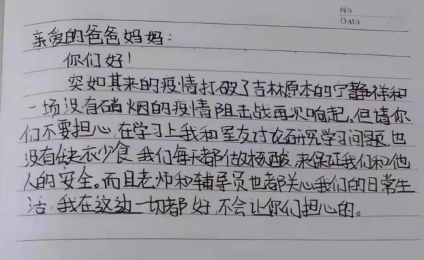 No.
Data
亲爱的爸爸妈妈:
你们好!
突如其来的疫情打破了吉林原本的宁静祥和
一场没有硝烟的疫情阻击战再次响起,但请你
们不要担心,在学习上我和室友讨论研究学习问题,也
没有缺衣少食,我们每天都做核酸,来保证我们和他
人的安全。而且老师和辅导员也都关心我们的日常生
活,我在这边一切都好,不会让你们担心的。